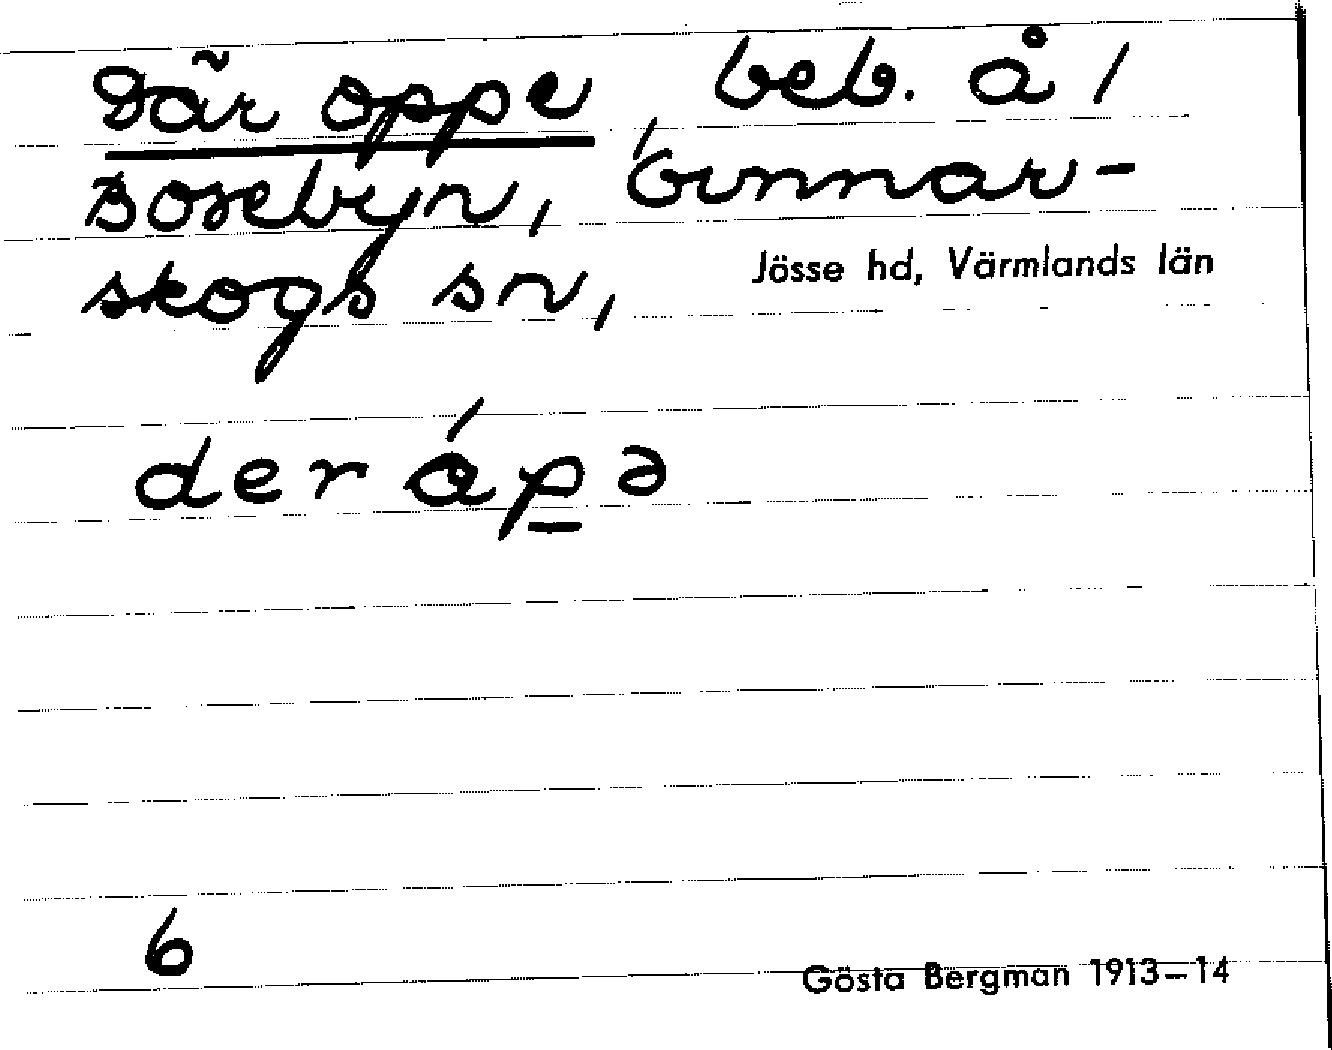 Där oppe beb. å 1/
Bosebyn, Gunnar-
skogs sn, Jösse hd, Värmlands län
der ápə
6
Gösta Bergman 1913–14